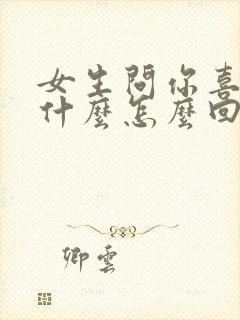 女生問你喜
什麼怎麼回
卿雲